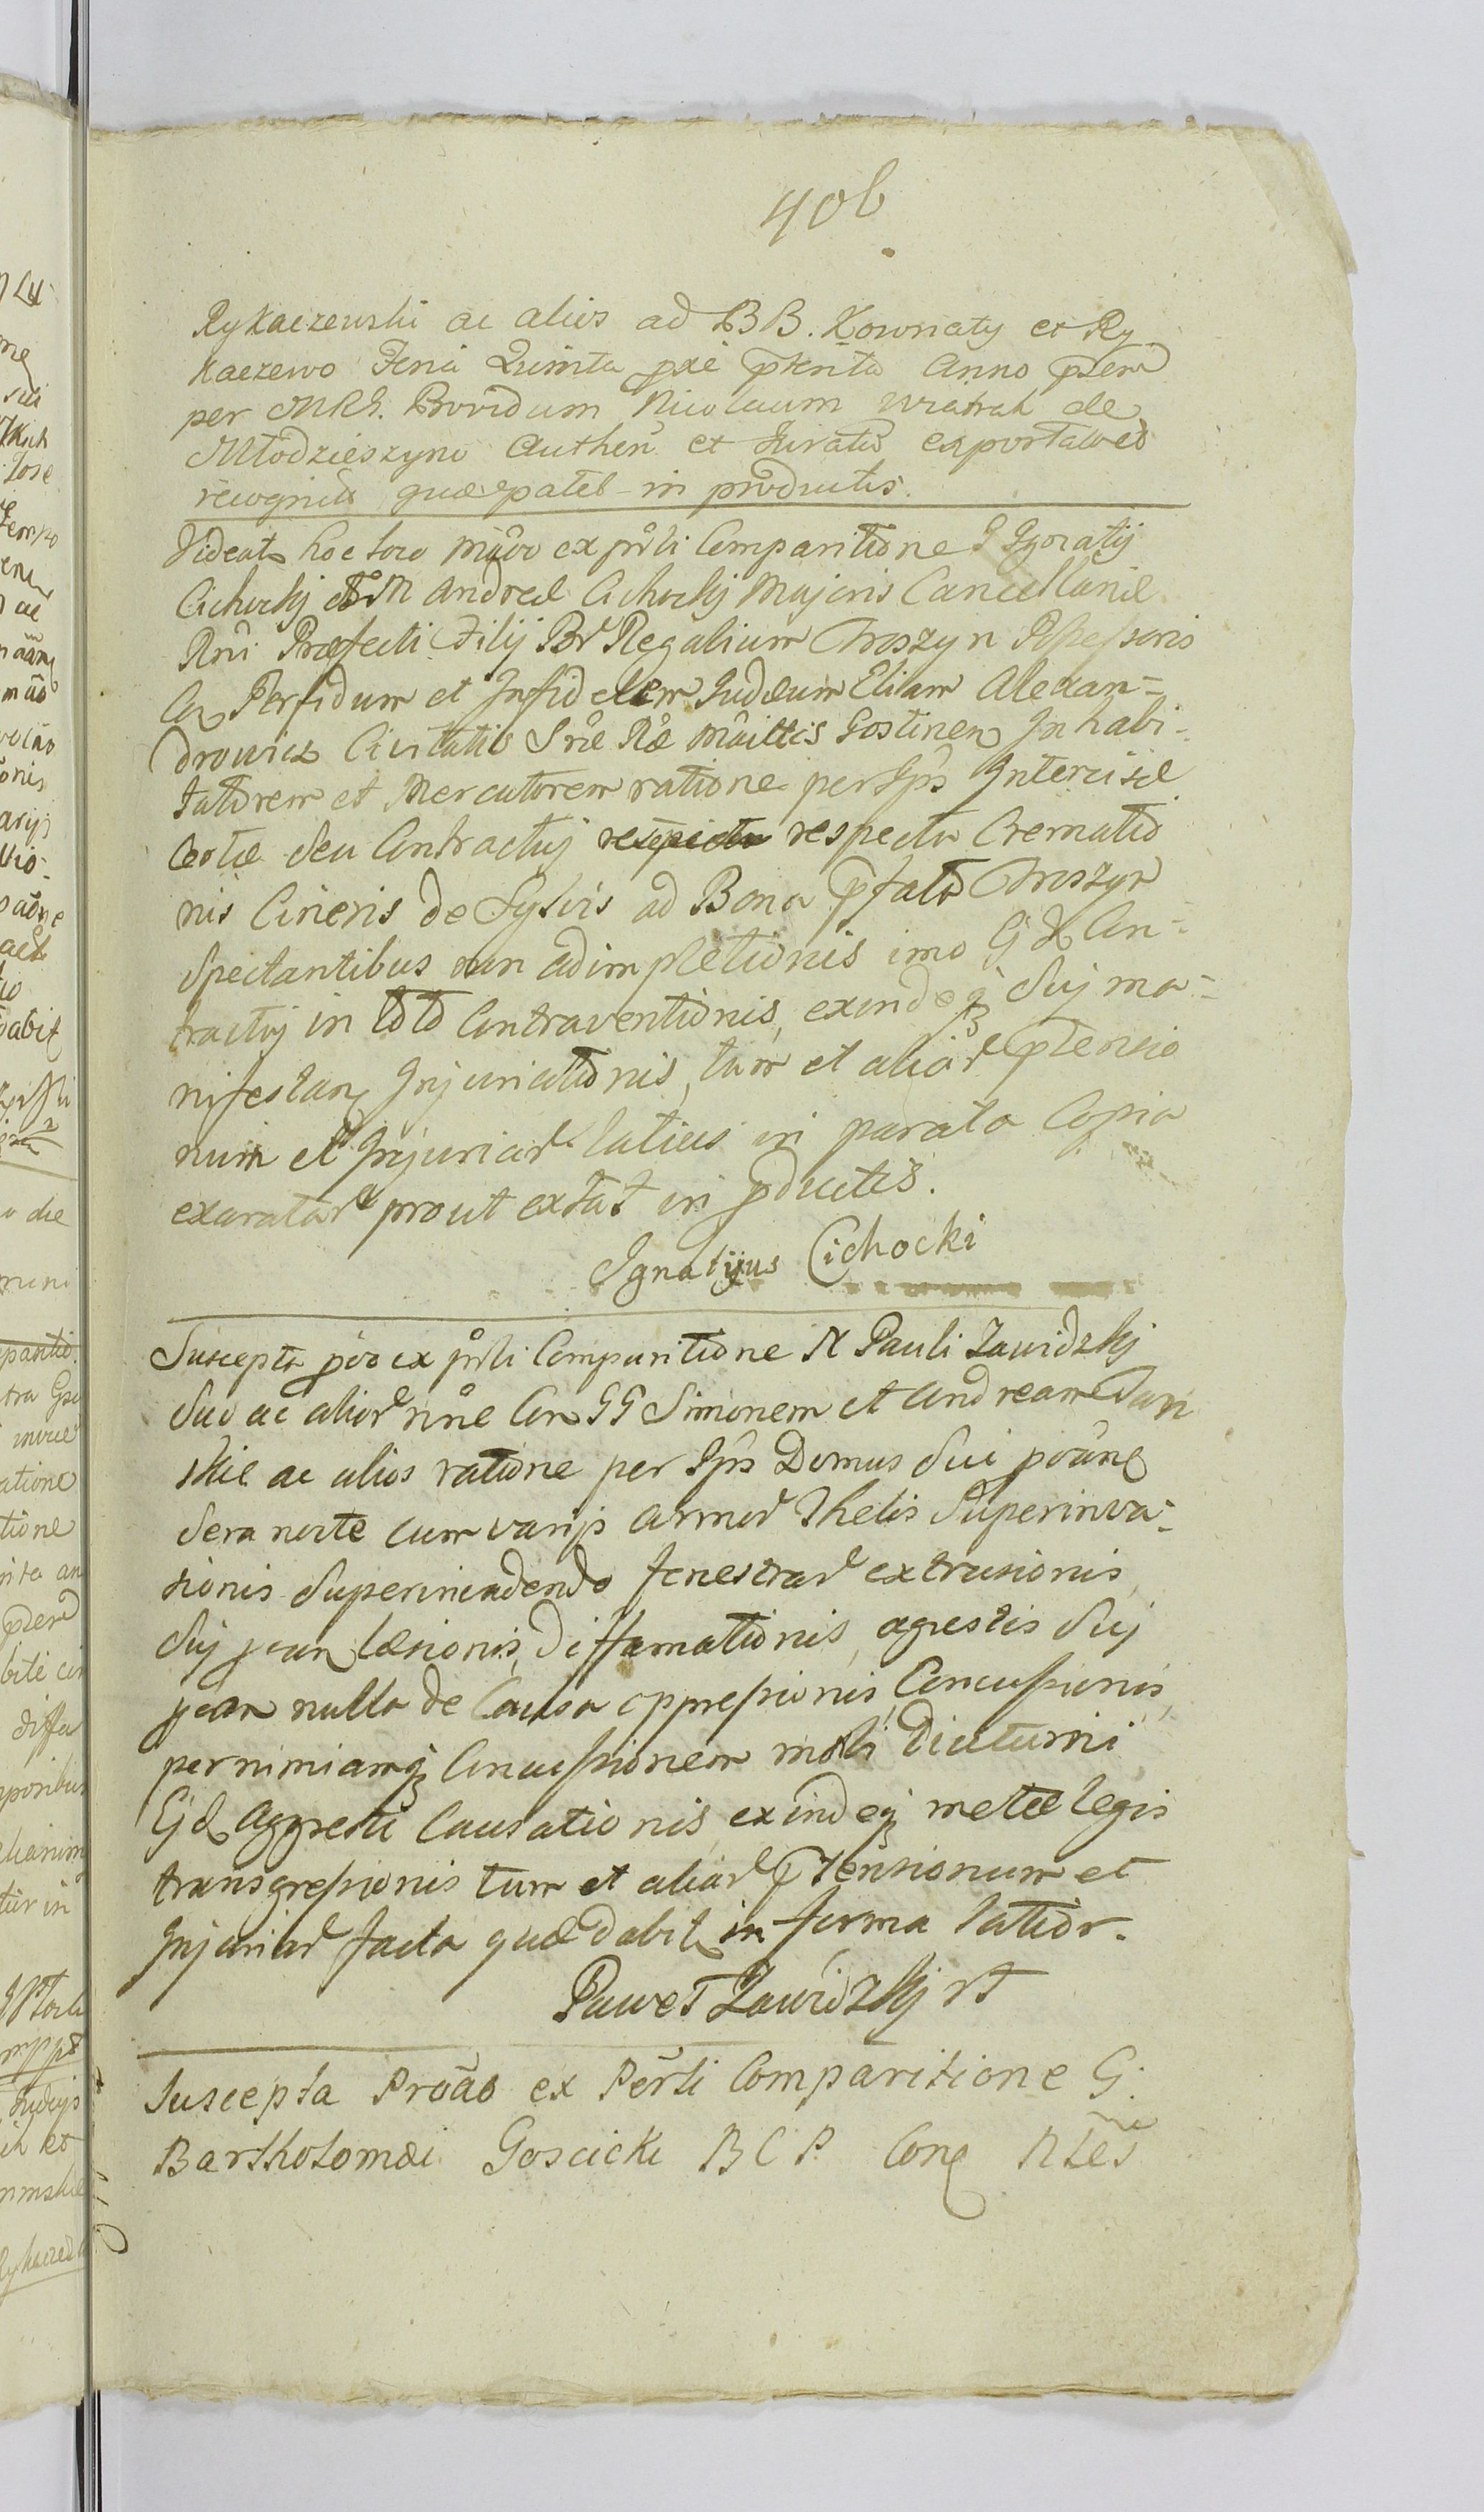 406
Rykaczewski ac alios ad BB. Kownaty et Ry
kaczewo Feria Quinta pxe pterita Anno pnti
per MRS. Providum Nicolaum Wratrak de
Młodzieszyno Authen et Juratū exportatae et
recognitā quae patet in productis.
Videat hoc loco Mãõ ex psli Comparitione G Ignatij
Cichockij Andreae Cichockij Majoris Cancellariae
Rñi Praefecti Filij Bor Regalium Croszyn Possessoris
Con Perfidum et Infidelem Judaeum Eliam Alexan=
drowicz Civitatis Sae Rae Mãittis Gostinen Inhabi=
tatorem et Mercatorem ratione per Ipõ Intercisae
Certae Seu Contractuj respectu respectu Crematio
nis Cineris de Sylvis ad Bona pfata Croszyn
Spectantibus non adimpletionis imo Ejd Con=
tractuj in toto Contraventionis, exindeq Suj ma=
nifestan Injuriationis, tum et aliar ptensio
num et Injuriar latius in parata Copia
exaratar prout extat in pductis.
Ignatijus Cichocki
Suscepta põo ex psli Comparitione N Pauli Zawidzkj
Suo ac alior nõe Con GG Simonem et Andream
skie ac alios ratione per Ipõ Domus Sui
Sera nocte cum varijs armor Thelis Superinva=
sionis Superinvadendo fenestrar extrusionis,
Suj pean laesionis, Diffamationis, agrestis Suj
pean nulla de Causa oppressionis, Concussionis,
pernimiamq Concussionem mõbi Diuturni
Ejd Aggresti Causationis, exindeq metae legis
transgressionis tum et aliar ptensionum et
Injuriar facta quae dabit in forma latior.
Paweł Zawidzkj
Suscepta Prõão ex Pērsli Comparitione G.
Bartholomaei Goscicki B C P Con Nles